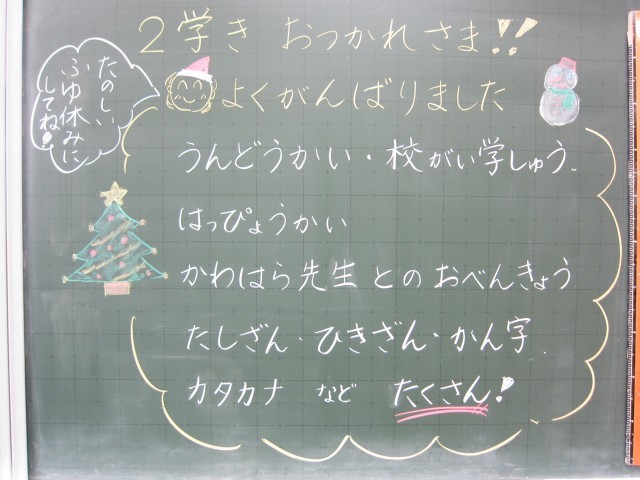 2学き おつかれさま!!
よくがんばりました
たのしい
ふゆ休みに
してね!
うんどうかい・校がい学しゅう
はっぴょうかい
かわはら先生とのおべんきょう
たしざん・ひきざん・かん字
カタカナ など たくさん!